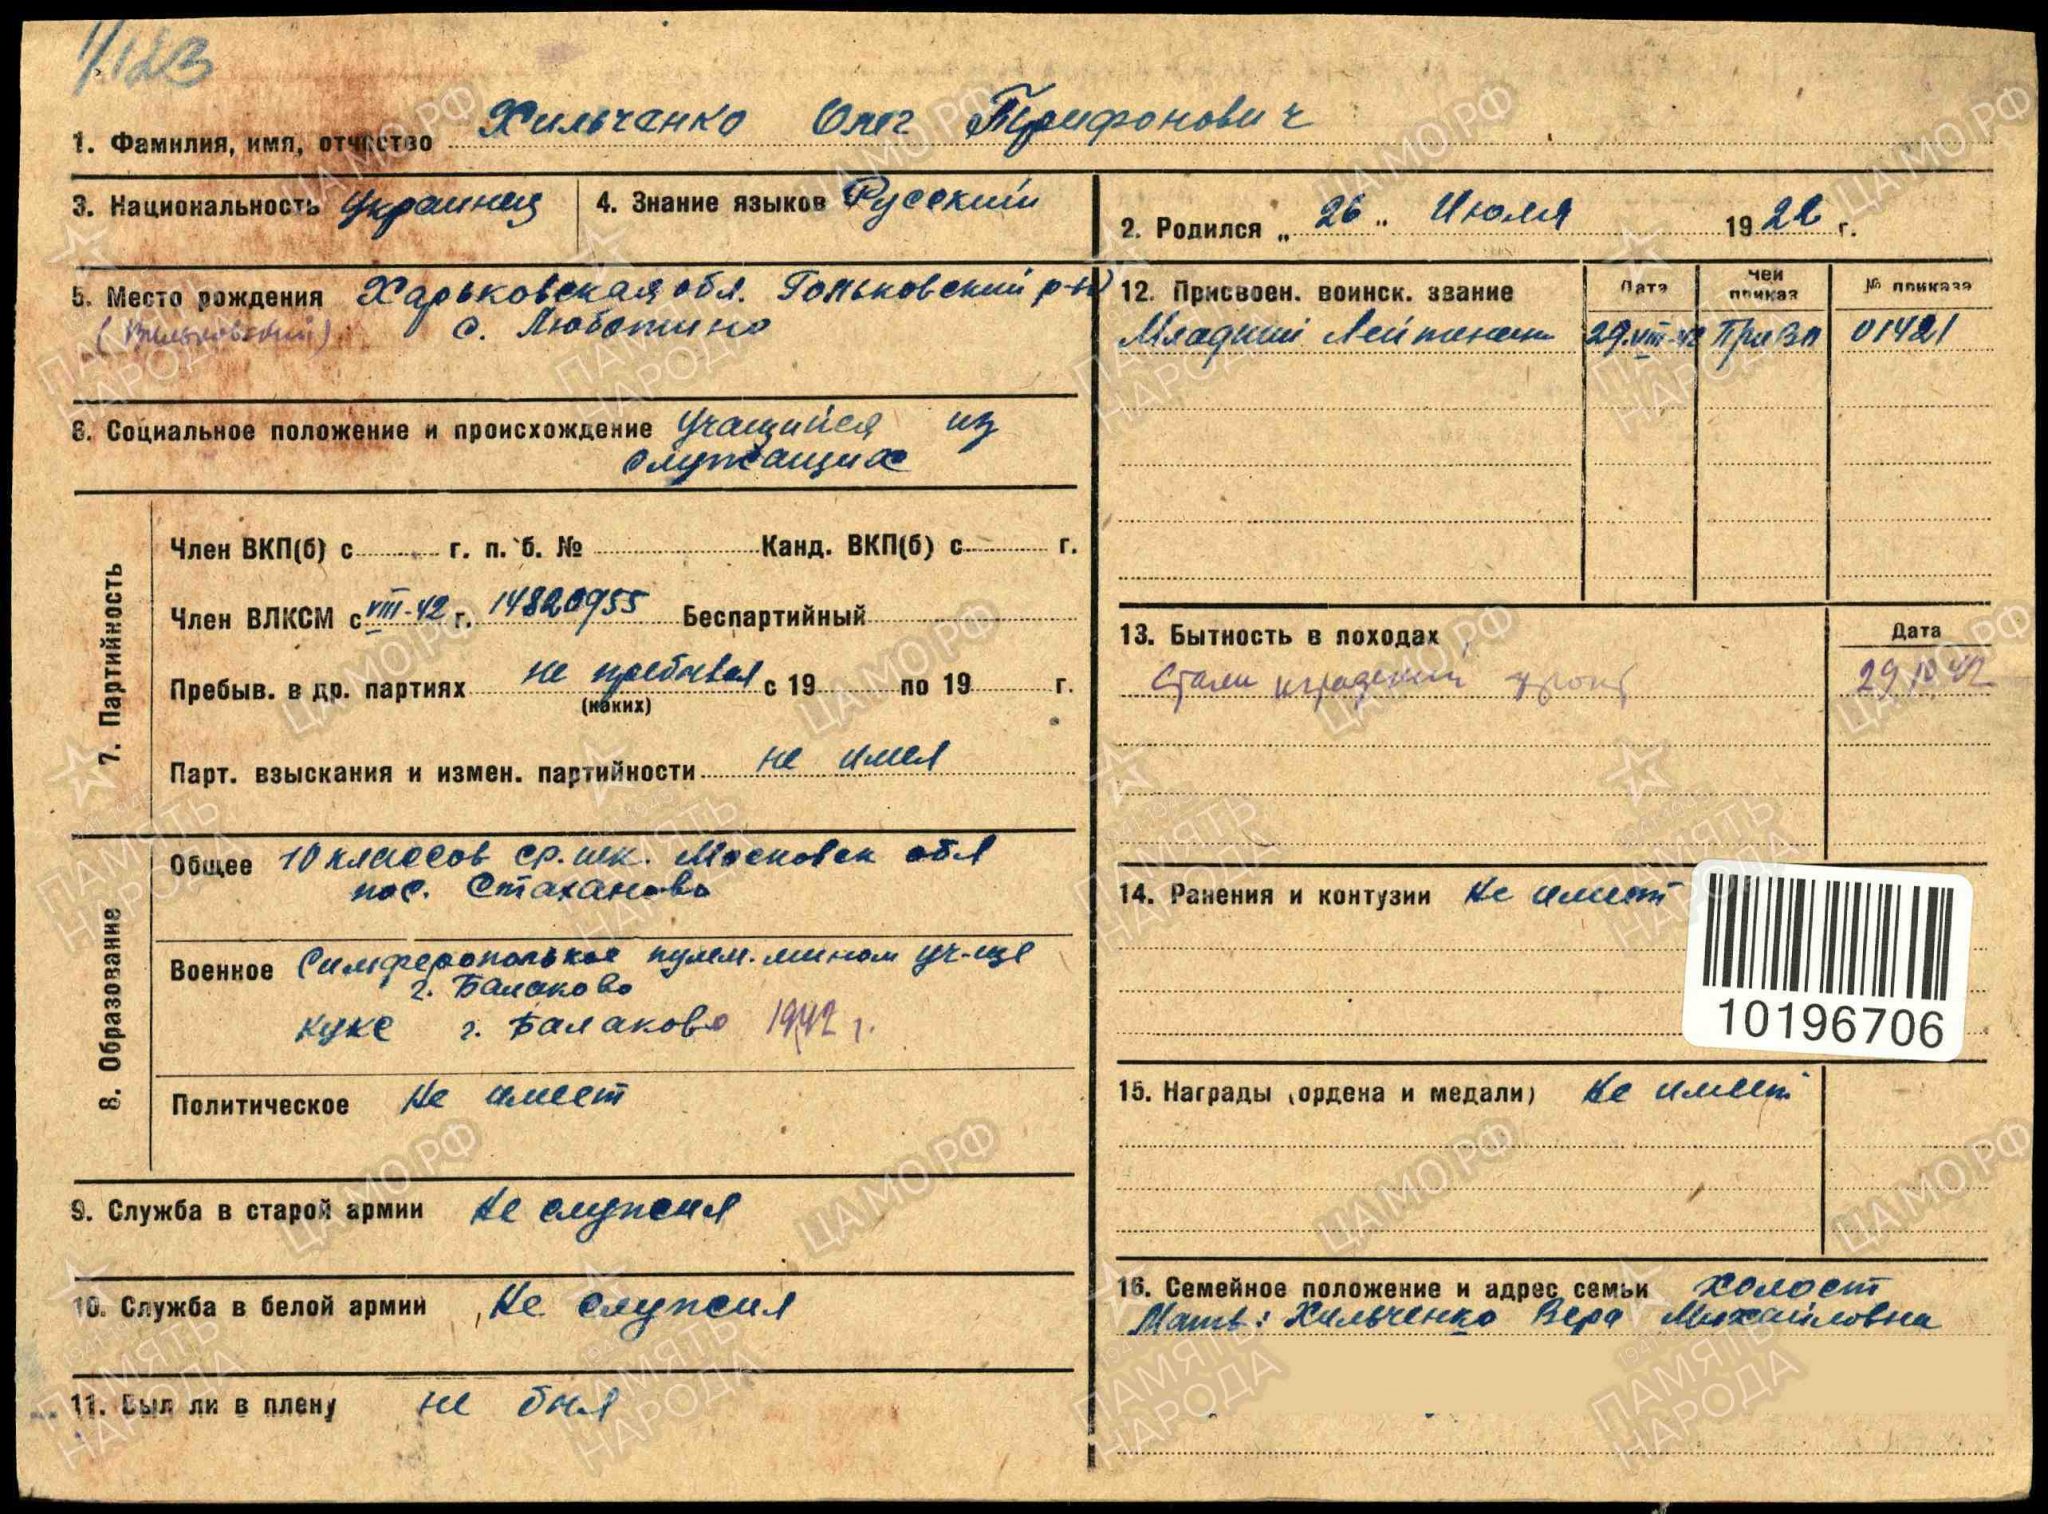 1/123
1. Фамилия, имя, отчество Хильченко Олег Трифонович
3. Национальность Украинец 4. Знание языков Русский
2. Родился „ 26 " Июля 1922 г.
5. Место рождения Харьковская обл. Гольковский р-н
с. Люботино
6. Социальное положение и происхождение учащийся из
служащих
7. Партийность
Член ВКП(б) с г. п. б. № Канд. ВКП(б) с г.
Член ВЛКСМ с VIII-42 г. 14820955 Беспартийный
Пребыв. в др. партиях не пребывал с 19 по 19 г.
(каких)
Парт. взыскания и измен. партийности не имел
8. Образование
Общее 10 классов ср. шк. Московск обл
пос. Стаханово
Военное Симферопольское пулем. мином уч-ще
г. Балаково
КУКС г. Балаково 1942 г.
Политическое Не имеет
9. Служба в старой армии Не служил
10. Служба в белой армии Не служил
11. Был ли в плену не был
12. Присвоен. воинск. звание Дата Чей приказ № приказа
Младший Лейтенант 29.VIII-42 ПриВО 01421
13. Бытность в походах Дата
Сталинградский фронт 29.10.42
14. Ранения и контузии Не имеет
10196706
15. Награды (ордена и медали) Не имеет
16. Семейное положение и адрес семьи Холост
Мать: Хильченко Вера Михайловна
ПАМЯТЬ НАРОДА
1941-1945
ЦАМО.РФ